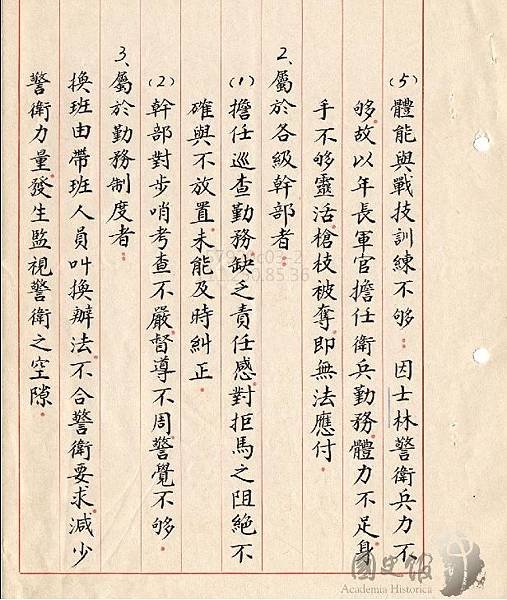 (5)體能與戰技訓練不够：因士林警衛兵力不
够故以年長軍官擔任衛兵勤務體力不足身
手不够靈活槍枝被奪即無法應付。
2、屬於各級幹部者：
(1)擔任巡查勤務缺乏責任感對拒馬之阻絕不
確與不放置未能及時糾正。
(2)幹部對步哨考查不嚴督導不周警覺不够。
3、屬於勤務制度者：
換班由帶班人員叫換辦法不合警衛要求減少
警衛力量發生監視警衛之空隙。
國史館
Academia Historica